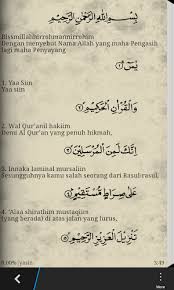 بِسْمِ اللّٰهِ الرَّحْمٰنِ الرَّحِيْمِ
Bissmillahhirrohmannirrohim
Dengan menyebut Nama Allah yang maha Pengasih
lagi maha Penyayang
يٰسۤ ﴿١﴾
1. Yaa Siin
Yaa siin
وَالْقُرْاٰنِ الْحَكِيْمِ ﴿٢﴾
2. Wal Qur'anil hakiim
Demi Al Qur'an yang penuh hikmah,
اِنَّكَ لَمِنَ الْمُرْسَلِيْنَ ﴿٣﴾
3. Innaka laminal mursaliin
Sesungguhnya kamu salah seorang dari Rasul-rasul,
عَلٰى صِرَاطٍ مُّسْتَقِيْمٍ ﴿٤﴾
4. 'Alaa shirathim mustaqiim
(yang berada) di atas jalan yang lurus,
تَنْزِيْلَ الْعَزِيْزِ الرَّحِيْمِ ﴿٥﴾
0.00% |yasin 3:49
Back